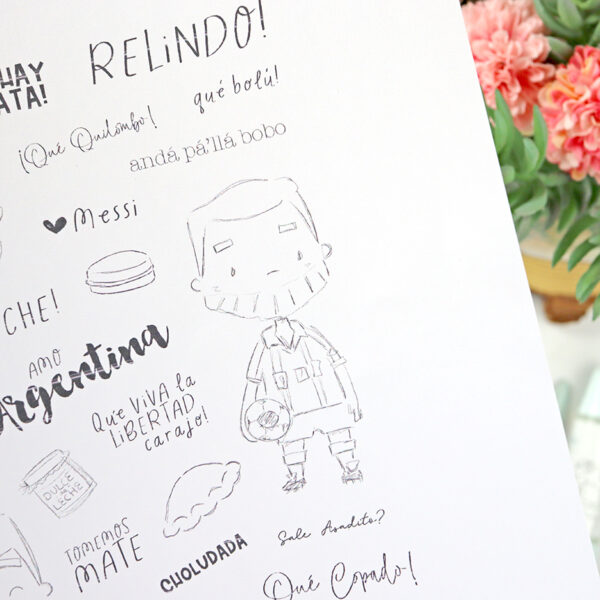 RELINDO!
HAY
ATA!
qué bolú!
¡Qué Quilombo!
andá pa'llá bobo
Messi
CHE!
AMO
Argentina
Que VIVA la
LIBERTAD
carajo!
DULCE
de
LECHE
TOMEMOS
MATE
CHOLUDADA
Sale Asadito?
Qué Copado!